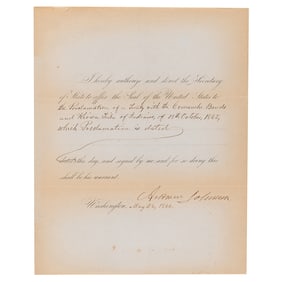 I hereby authorize and direct the Secretary
of State to affix the Seal of the United States to
the Proclamation of a Treaty with the Comanche Bands
and Kiowa Tribe of Indians, of 18th October, 1865,
which Proclamation is dated
this day, and signed by me and for so doing this
shall be his warrant.
Andrew Johnson
Washington, May 26, 1866.